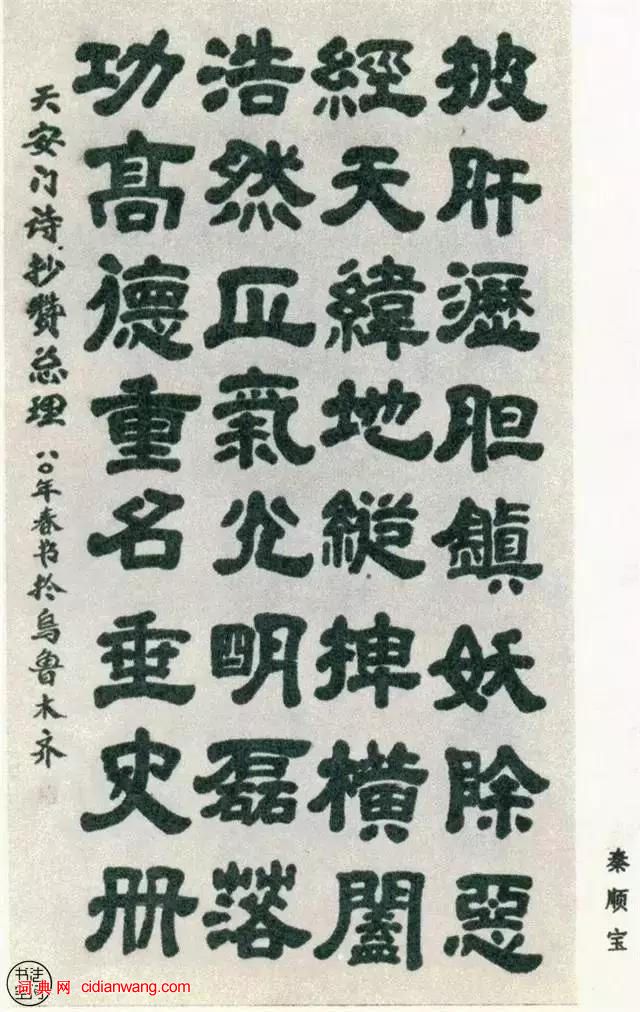 披肝瀝胆鎮妖除惡
經天緯地縱捭橫闔
浩然正氣光明磊落
功高德重名垂史册
天安门诗抄赞总理 八〇年春书於乌鲁木齐
秦顺宝
词典网 cidianwang.com